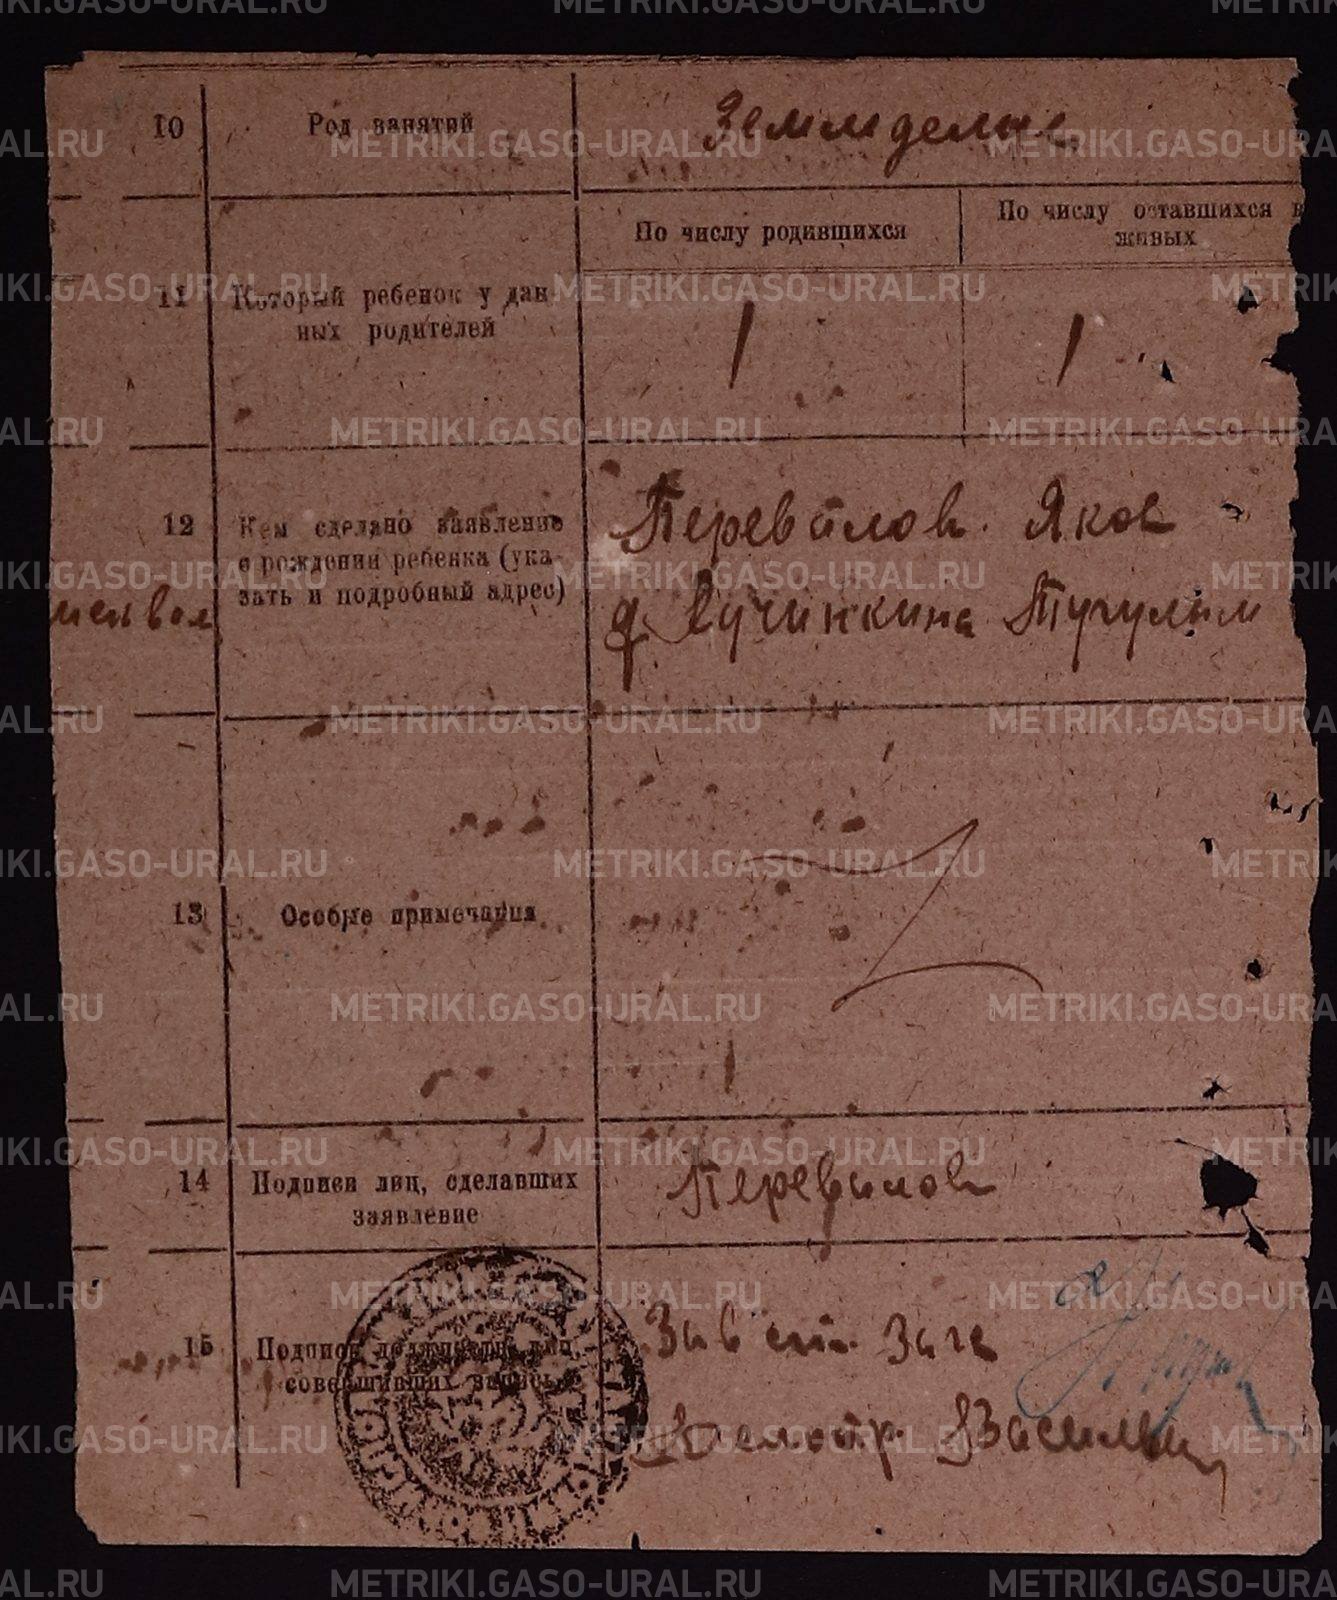 10 Род занятий Земледелие
По числу родившихся По числу оставшихся в
живых
11 Который ребенок у дан-
ных родителей
1 1
12 Кем сделано заявление
о рождении ребенка (ука-
зать и подробный адрес)
Перевалов Яков
д Лучинкина Тугулым
вол
13 Особые примечания
14 Подписи лиц, сделавших
заявление
Перевалов
15 Подписи должностн. лиц,
совершивших запись
Зав
Делопр.
METRIKI.GASO-URAL.RU